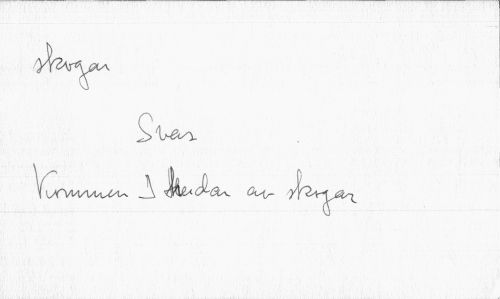 skogar
Svers
Kommen I Heidar av skogar